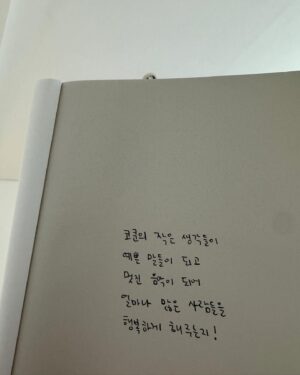 코쿤의 작은 생각들이
예쁜 말들이 되고
멋진 음악이 되어
얼마나 많은 사람들을
행복하게 해주는지!